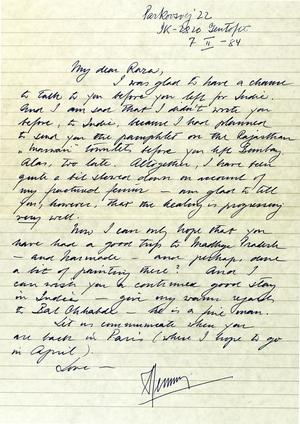 Parkovsvej 22
DK-2820 Gentofte
7 II - 84
My dear Raza,
I was glad to have a chance
to talk to you before you left for India.
And I am sad that I didn't write you
before, to India, because I had planned
to send you the pamphlet on the Rajasthan
before you left Bombay
Alas, too late. Altogether, I have been
quite a bit slowed down on account of
my fractured femur – am glad to tell
you, however, that the healing is progressing
very well.
Now I can only hope that you
have had a good trip to Madhya Pradesh
– and – and perhaps, done
a bit of painting there? And I
can wish you a continued good stay
in India – give my warm regards
to Bal Chhabda – he is a fine man.
Let us communicate when you
are back in Paris (where I hope to go
in April).
Love –